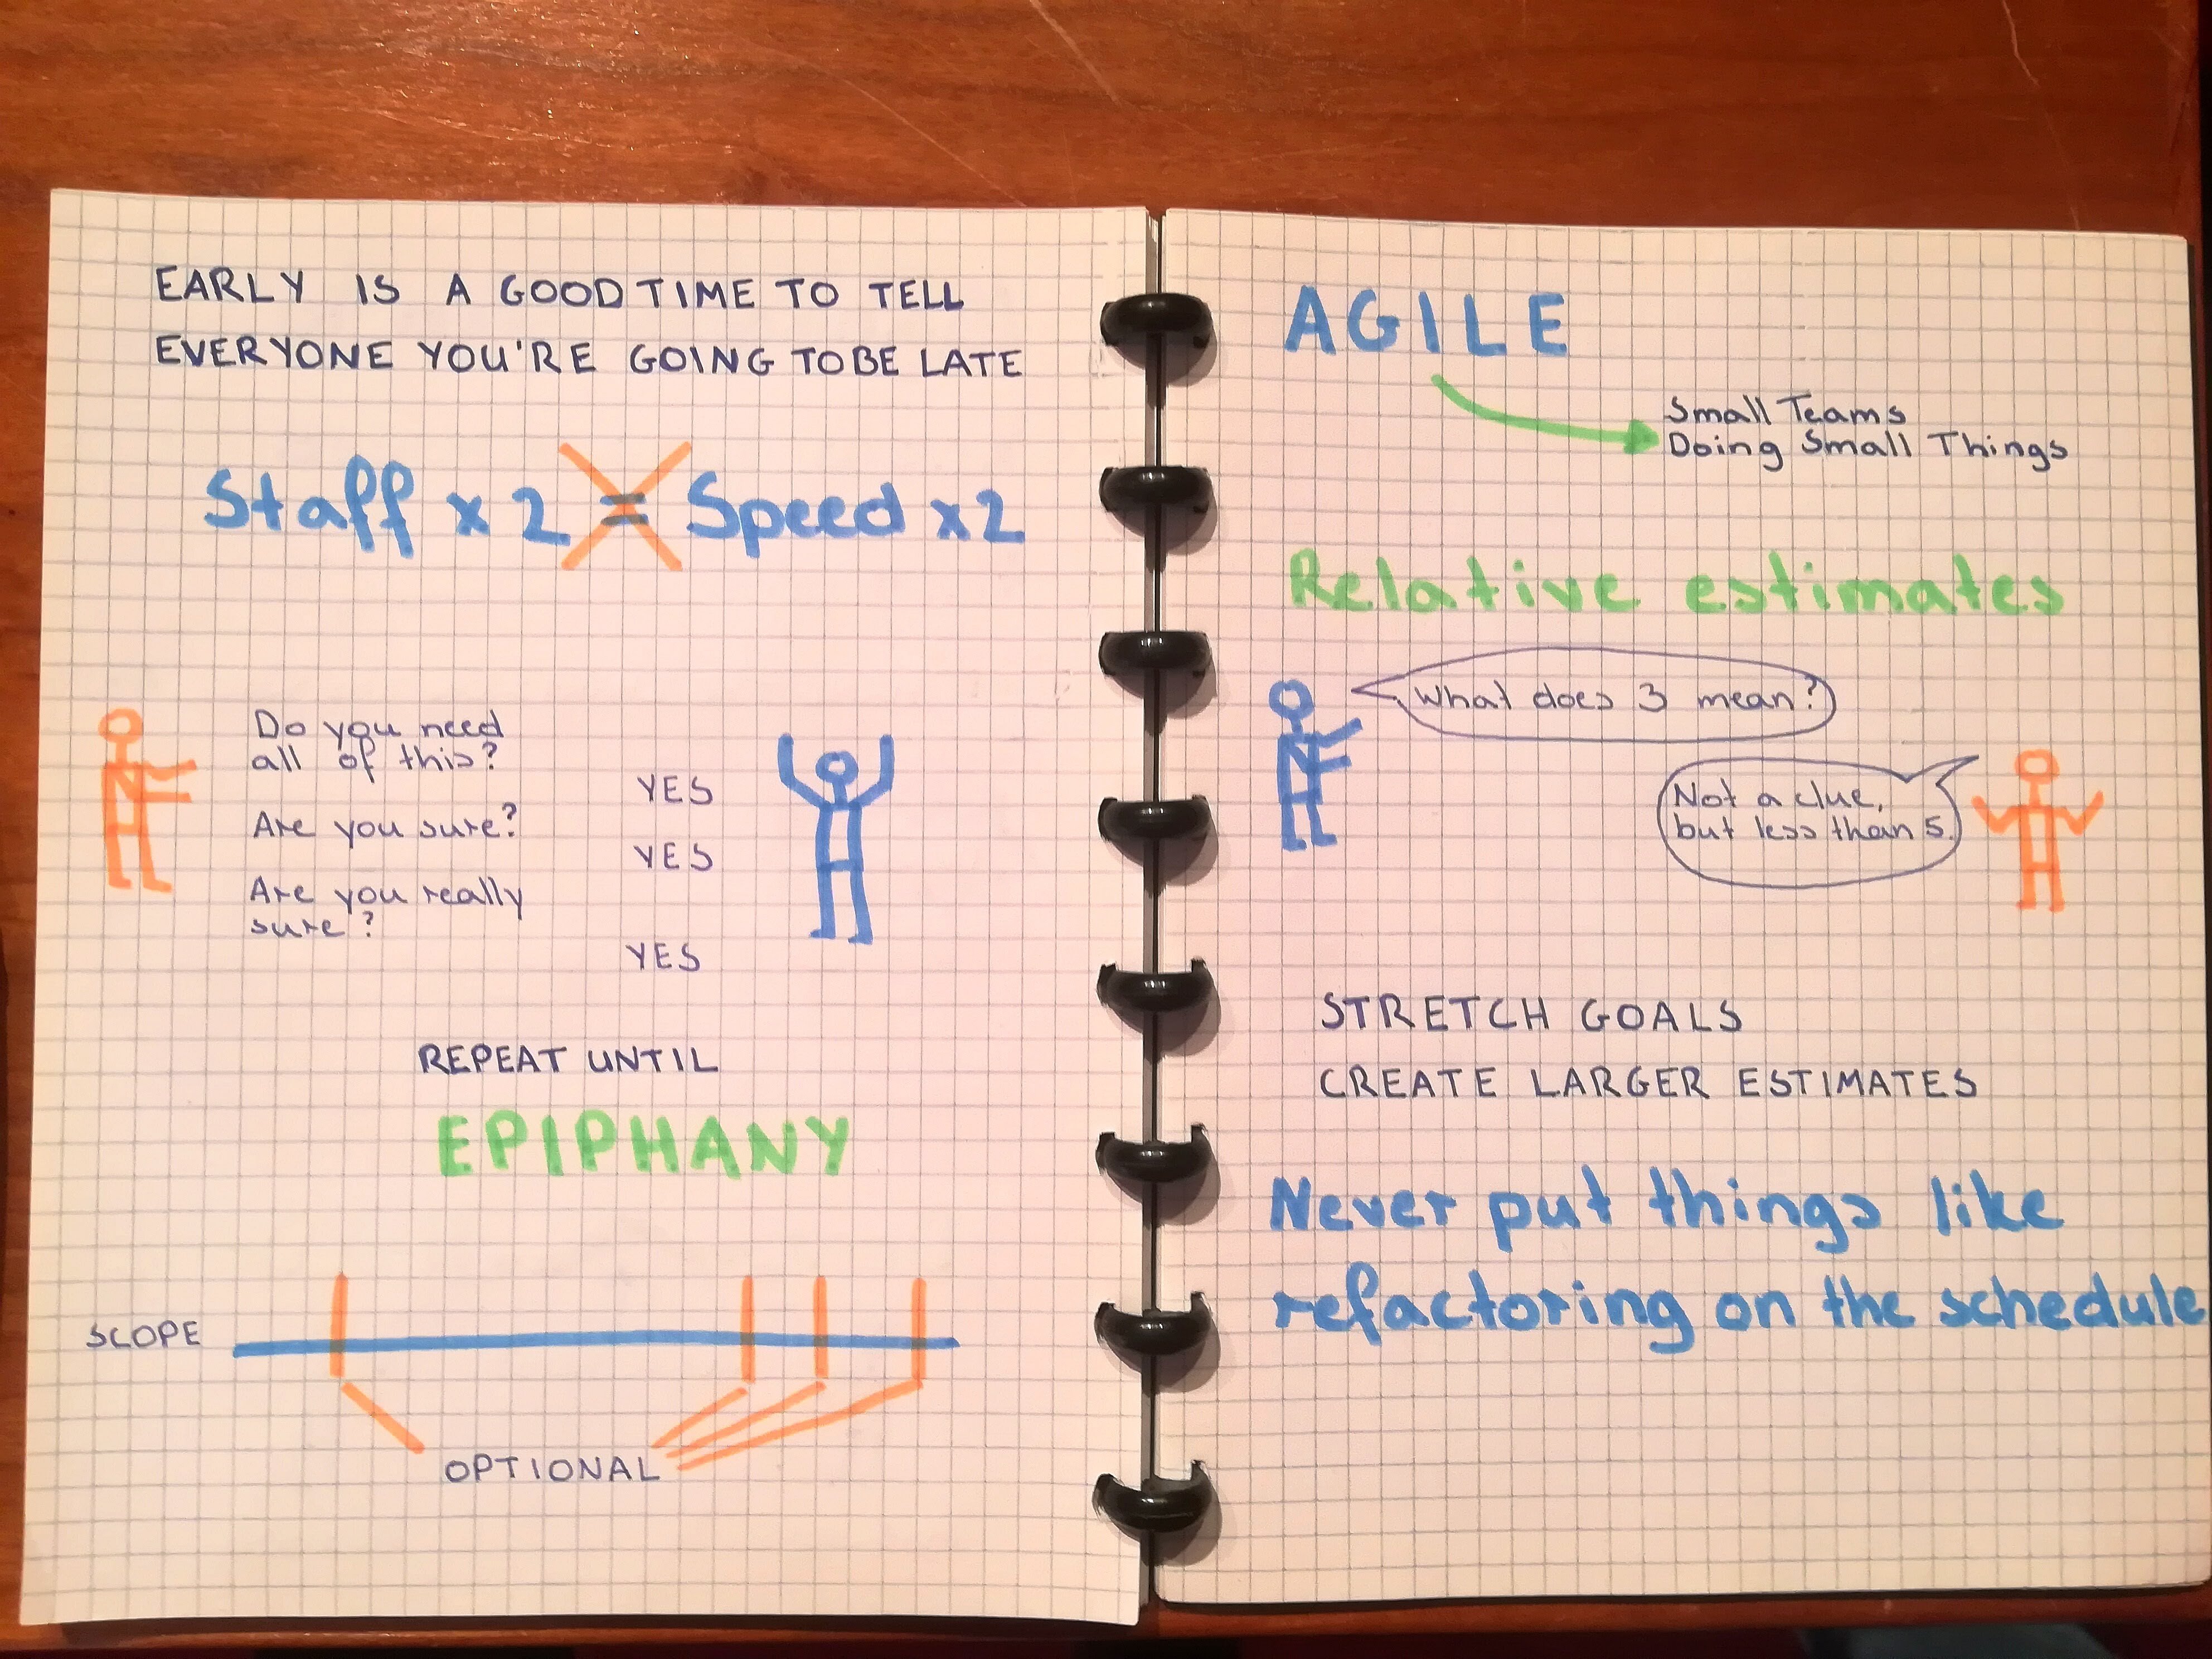 EARLY IS A GOOD TIME TO TELL
EVERYONE YOU'RE GOING TO BE LATE
Staff x 2 = Speed x2
Do you need
all of this?
YES
Are you sure?
YES
Are you really
sure?
YES
REPEAT UNTIL
EPIPHANY
SCOPE
OPTIONAL
AGILE
Small Teams
Doing Small Things
Relative estimates
What does 3 mean?
Not a clue,
but less than 5.
STRETCH GOALS
CREATE LARGER ESTIMATES
Never put things like
refactoring on the schedule